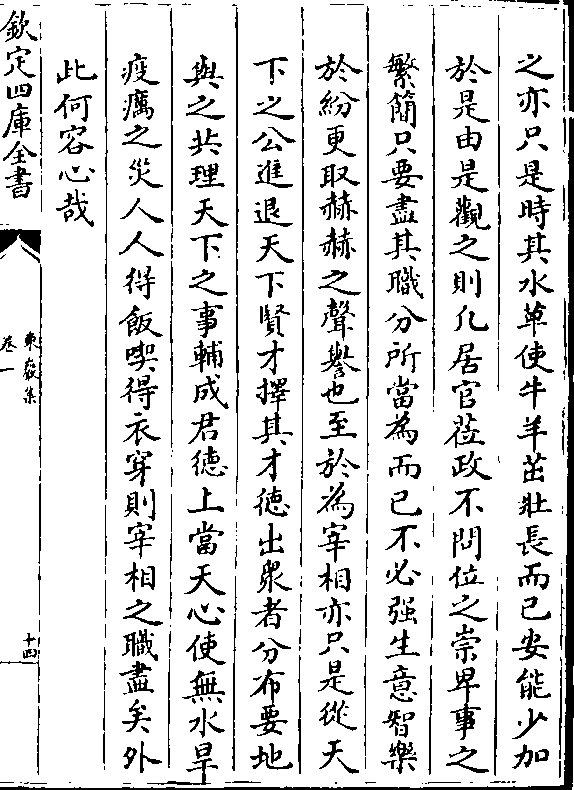 之亦只是時其水草使牛羊茁壯長而已安能少加
於是由是觀之則凡居官蒞政不問位之崇卑事之
繁簡只要盡其職分所當為而已不必强生意智樂
於紛更取赫赫之聲譽也至於為宰相亦只是從天
下之公進退天下賢才擇其才徳出衆者分布要地
與之共理天下之事輔成君徳上當天心使無水旱
疫癘之災人人得飯喫得衣穿則宰相之職盡矣外
此何容心哉
欽定四庫全書
卷一
十四